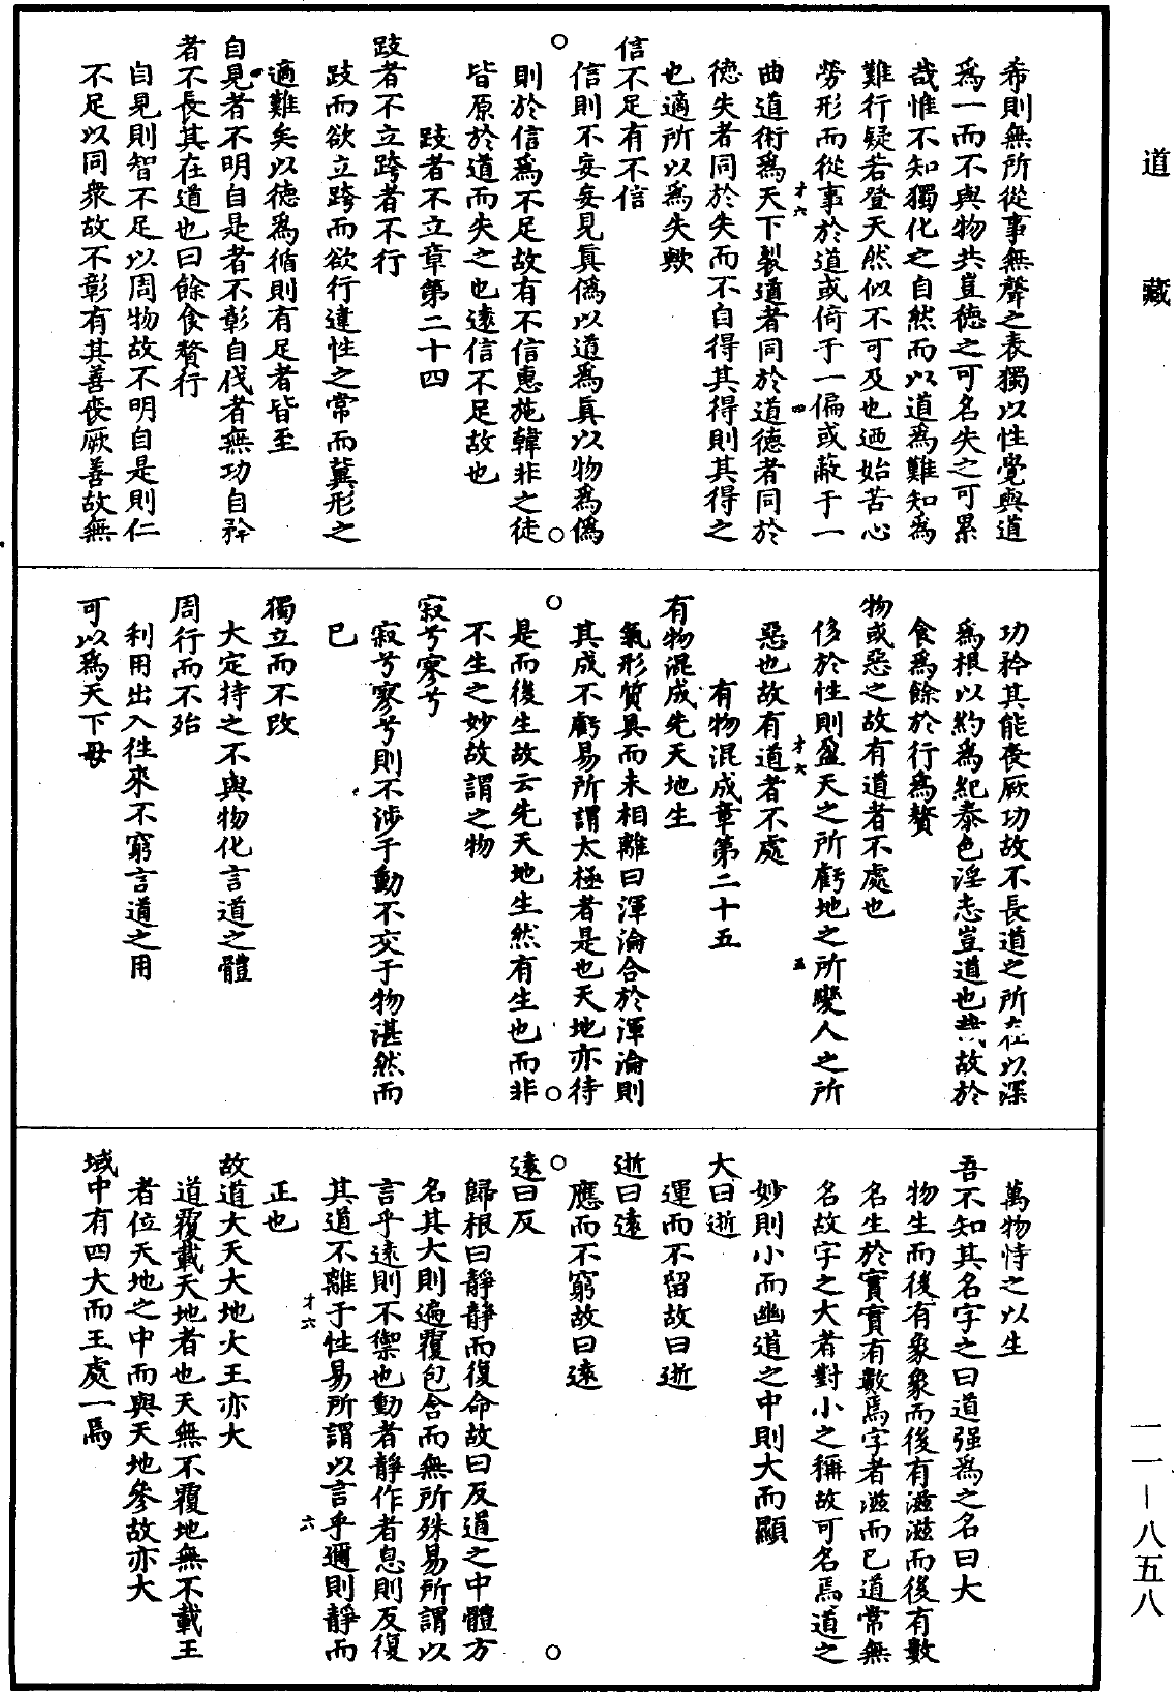 道藏
希則無所從事無聲之表獨以性覺與道
為一而不與物共豈德之可名失之可累
哉惟不知獨化之自然而以道為難知為
難行疑若登天然似不可及也迺始苦心
勞形而從事於道或倚于一偏或蔽于一
才六 四
曲道術為天下裂道者同於道德者同於
德失者同於失而不自得其得則其得之
也適所以為失歟
信不足有不信
信則不妄妄見真偽以道為真以物為偽
則於信為不足故有不信惠施韓非之徒
皆原於道而失之也遠信不足故也
跂者不立章第二十四
跂者不立跨者不行
跂而欲立跨而欲行違性之常而冀形之
適難矣以德為循則有足者皆至
自見者不明自是者不彰自伐者無功自矜
者不長其在道也曰餘食贅行
自見則智不足以周物故不明自是則仁
不足以同衆故不彰有其善喪厥善故無
功矜其能喪厥功故不長道之所在以深
為根以約為紀泰色淫志豈道也哉故於
食為餘於行為贅
物或惡之故有道者不處也
侈於性則盈天之所虧地之所變人之所
才六 五
惡也故有道者不處
有物混成章第二十五
有物混成先天地生
氣形質具而未相離曰渾淪合於渾淪則
其成不虧易所謂太極者是也天地亦待
是而後生故云先天地生然有生也而非
不生之妙故謂之物
寂兮寥兮
寂兮寥兮則不涉于動不交于物湛然而
已
獨立而不改
大定持之不與物化言道之體
周行而不殆
利用出入徃來不窮言道之用
可以為天下母
萬物恃之以生
吾不知其名字之曰道强為之名曰大
物生而後有象象而後有滋滋而後有數
名生於實實有數焉字者滋而已道常無
名故字之大者對小之稱故可名焉道之
妙則小而幽道之中則大而顯
大曰逝
運而不留故曰逝
逝曰遠
應而不窮故曰遠
遠曰反
歸根曰靜靜而復命故曰反道之中體方
名其大則遍覆包含而無所殊易所謂以
言乎遠則不禦也動者靜作者息則反復
才六 六
其道不離于性易所謂以言乎邇則靜而
正也
故道大天大地大王亦大
道覆載天地者也天無不覆地無不載王
者位天地之中而與天地參故亦大
域中有四大而王處一焉
一一—八五八